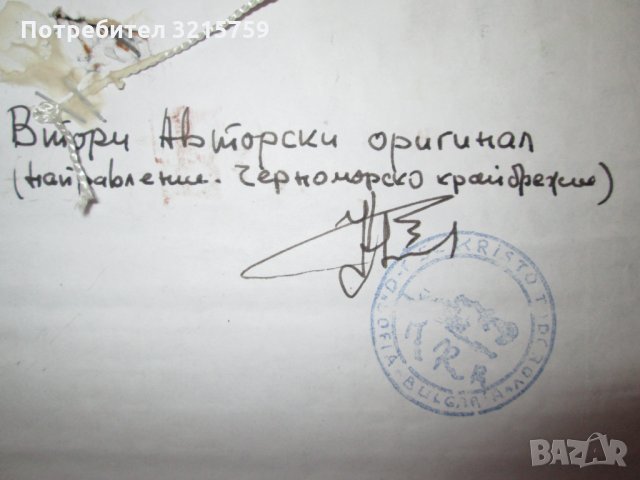 Потребител 3215759
Втори Авторски оригинал
(направление. Черноморско крайбрежие)
KRISTO
SOFIA
BULGARIA
BAZAR
bg